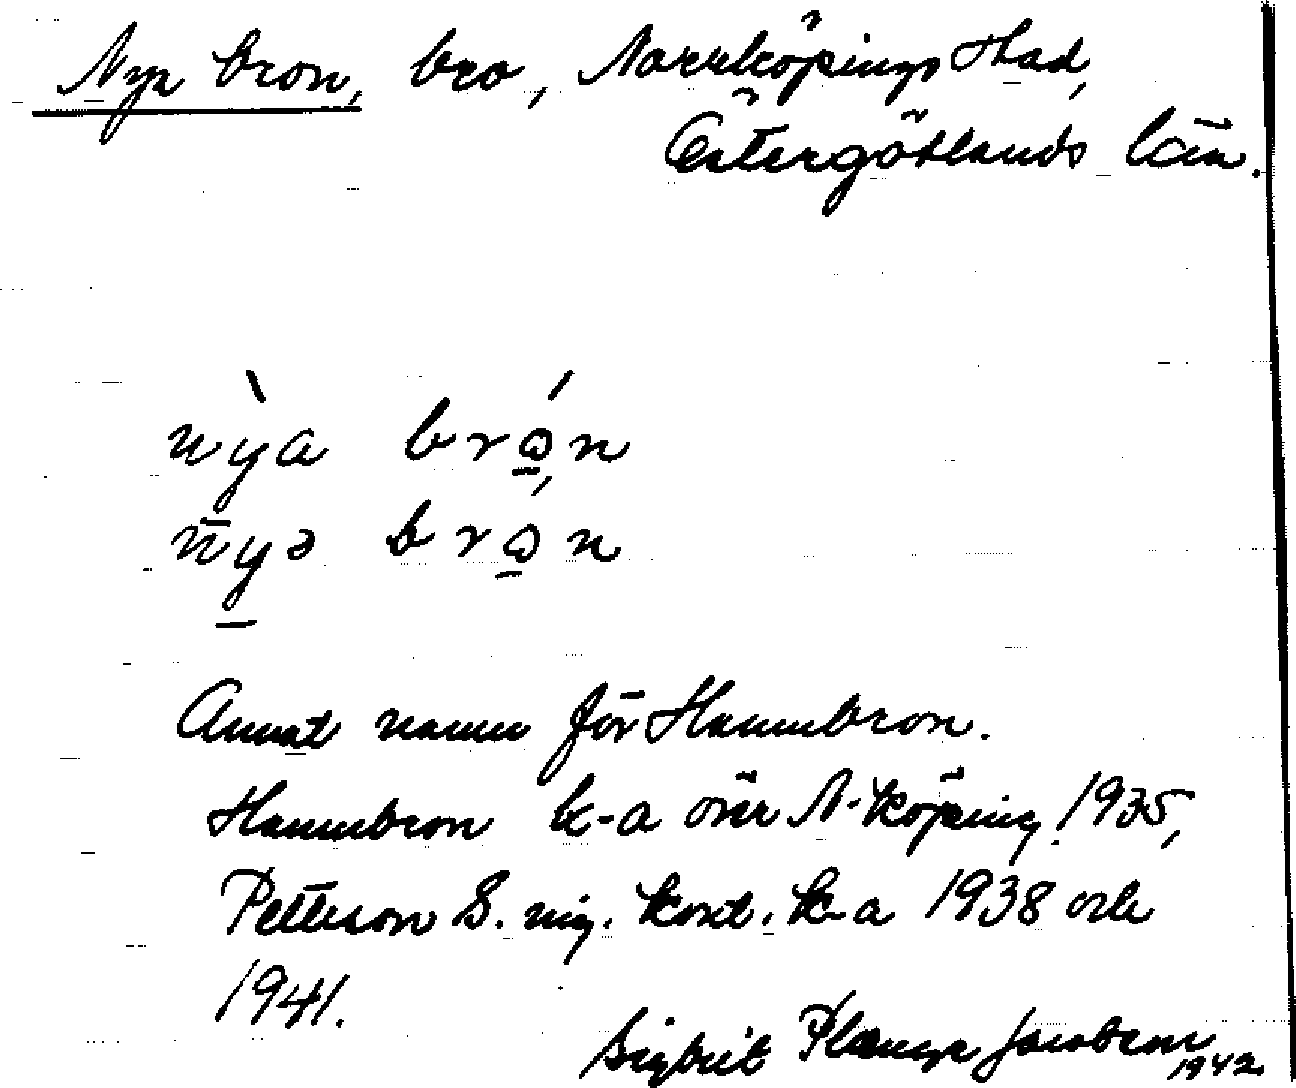 Nya bron, bro, Norrköpings stad,
Östergötlands län.
nỳa brǫ́n
nyə brǫ́n
Annat namn för Hamnbron.
Hamnbron k-a över N-köping 1935,
Petterson S. ing. kont. k-a 1938 och
1941.
Sigbrit Plaenge Jacobson
1942